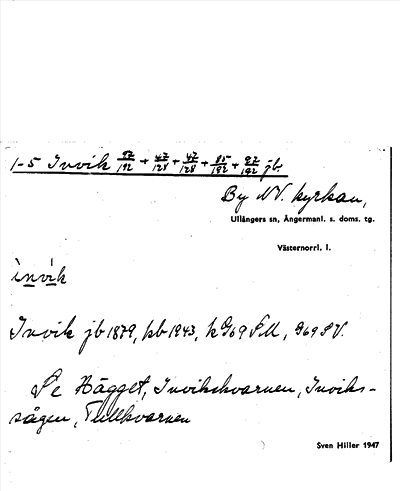 1-5 Invik 97/192 + 47/128 + 47/128 + 85/192 + 97/192 jb.
By NV. kyrkan,
Ullångers sn, Ångermanl. s. doms. tg.
Västernorrl. l.
invik
Invik jb 1879, kb 1943, k G69 SU, G69 SV.
Se Hägget, Invikskvarnen, Inviks-
sågen, Tullkvarnen
Sven Hiller 1947